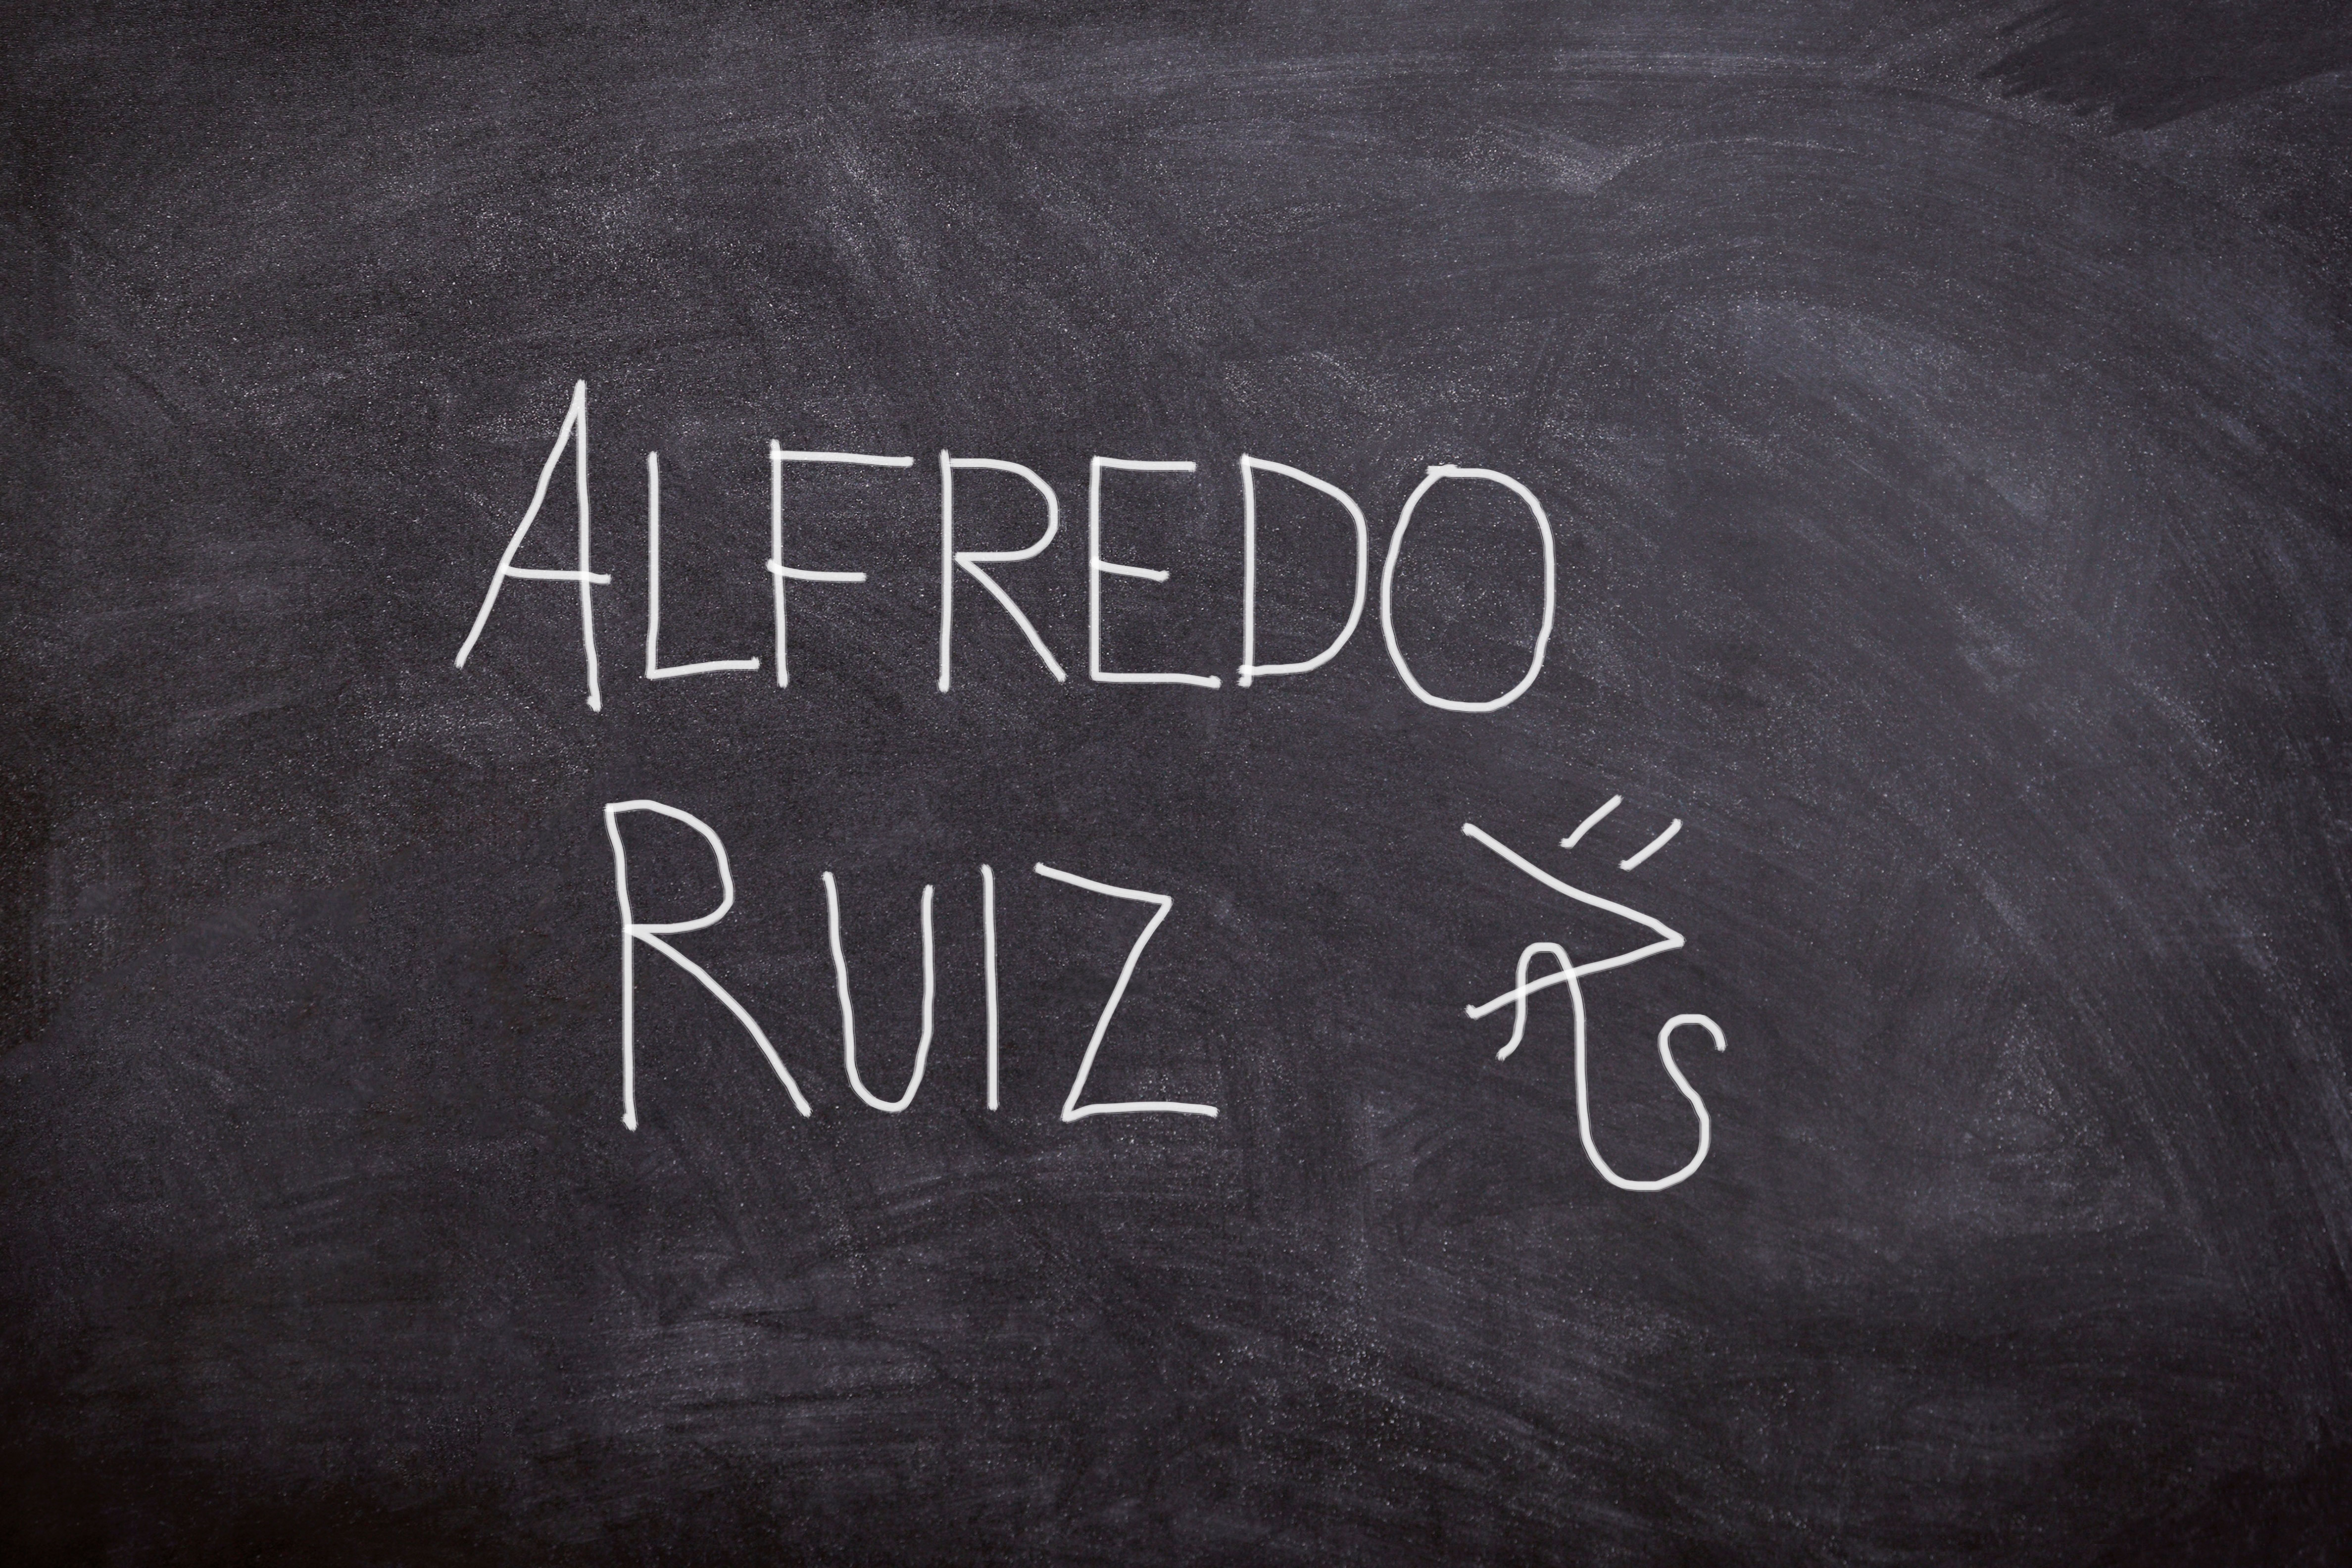 ALFREDO
RUIZ